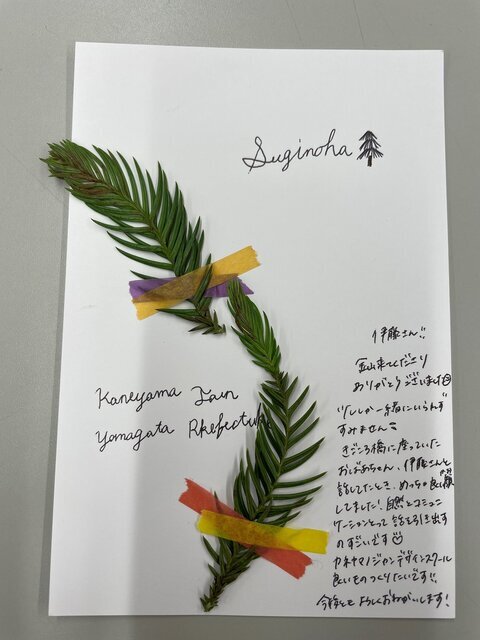 Suginoha
Kaneyama Town
Yamagata Prefecture
伊藤さん!!
金山来てくださり
ありがとうございました
少ししか一緒にいられず
すみません
きごころ橋に座っていた
おばあちゃん、伊藤さんと
話してたとき、めっちゃ良い顔
してました!自然とコミュニ
ケーションとって話を引き出す
のすごいです
カネヤマノジカンデザインスクール
良いものつくりたいです!!
今後ともよろしくおねがいします!